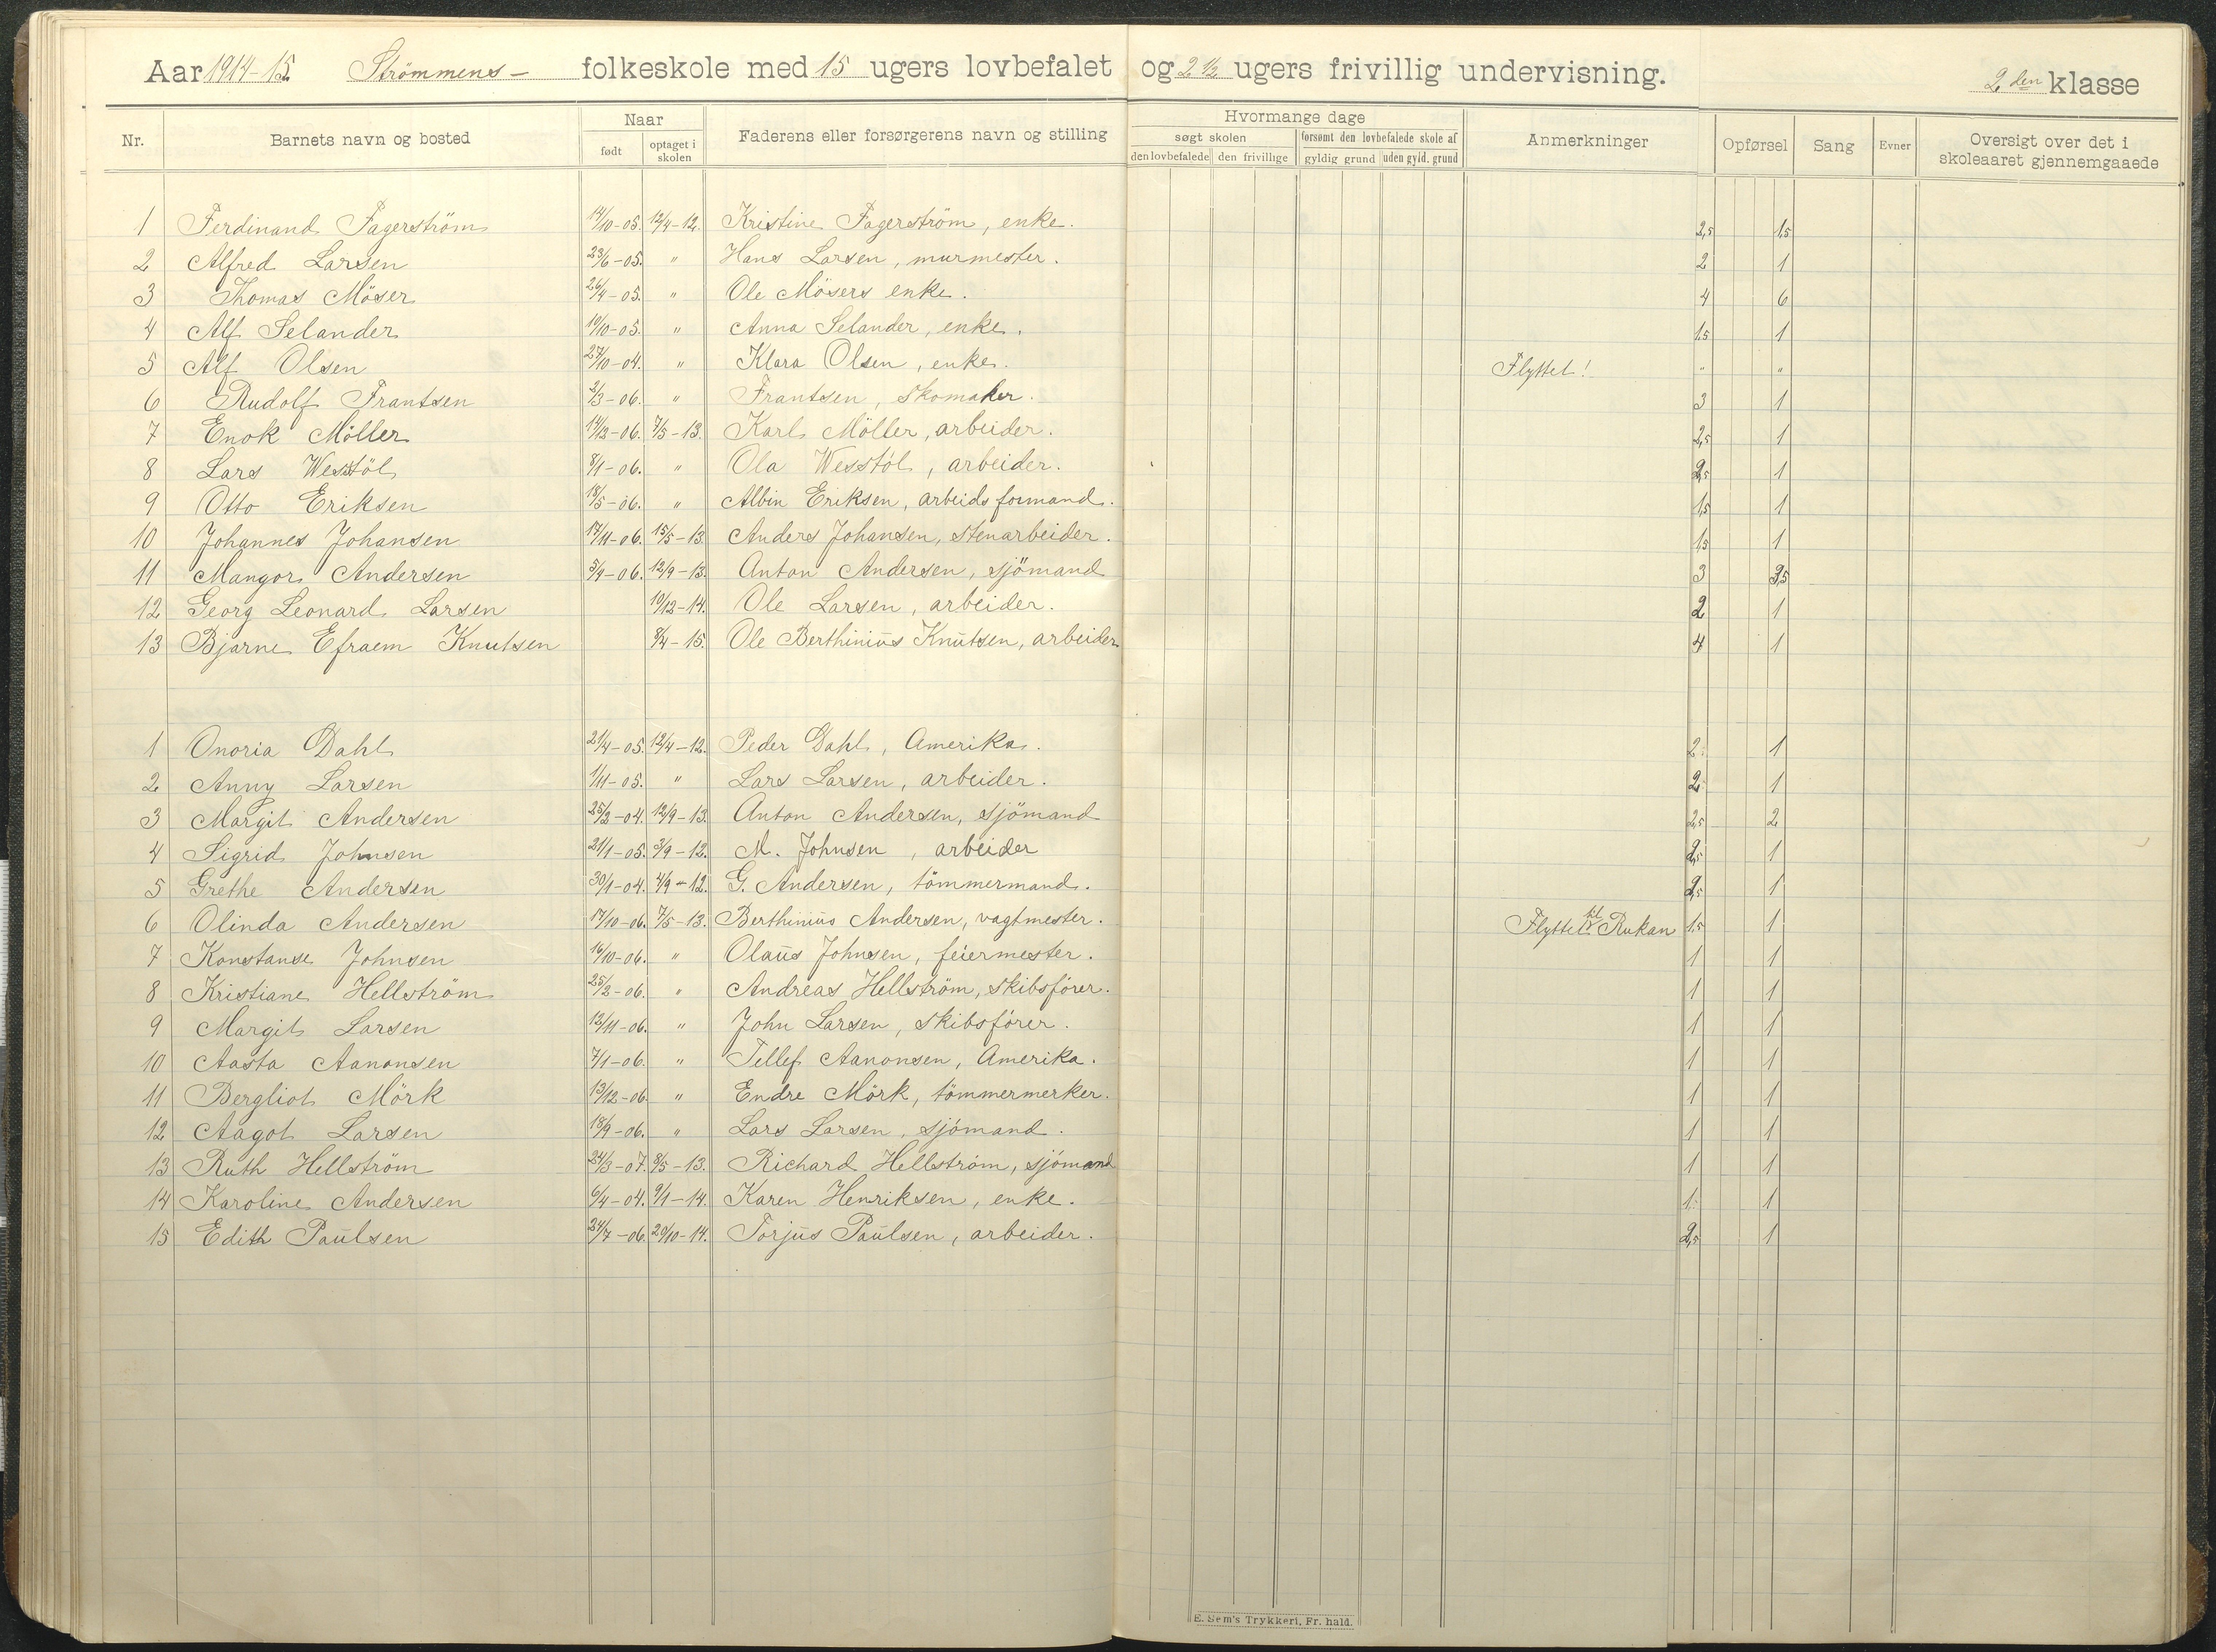 Aar 1914-15. Strömmens- folkeskole med 15 ugers lovbefalet og 2 1/2 ugers frivillig undervisning. 2den klasse
Nr. Barnets navn og bosted Naar Faderens eller forsørgerens navn og stilling Hvormange dage Anmerkninger Opførsel Sang Evner Oversigt over det i skoleaaret gjennemgaaede
født optaget i skolen søgt skolen forsømt den lovbefalede skole af
den lovbefalede den frivillige gyldig grund uden gyld. grund
1 Ferdinand Fagerström 14/10-05. 12/4-12. Kristine Fagerström, enke. 2,5 1,5
2 Alfred Larsen 23/6-05. " Hans Larsen, murmester. 2 1
3 Thomas Möser 26/4-05. " Ole Mösers enke. 4 6
4 Alf Selander 10/10-05. " Anna Selander, enke. 1,5 1
5 Alf Olsen 27/10-04. " Klara Olsen, enke. Flyttet! " "
6 Rudolf Frantsen 2/3-06. " Frantsen, skomaker. 3 1
7 Enok Möller 14/12-06. 7/5-13. Karl Möller, arbeider. 2,5 1
8 Lars Wesstöl 8/1-06. " Ola Wesstöl, arbeider. 2,5 1
9 Otto Eriksen 18/5-06. " Albin Eriksen, arbeidsformand. 1,5 1
10 Johannes Johansen 17/11-06. 15/5-13. Anders Johansen, stenarbeider. 1,5 1
11 Mangor Andersen 5/9-06. 12/9-13. Anton Andersen, sjömand 3 3,5
12 Georg Leonard Larsen 10/12-14. Ole Larsen, arbeider. 2 1
13 Bjarne Efraem Knutsen 8/4-15. Ole Berthinius Knutsen, arbeider 4 1
1 Onoria Dahl 21/4-05. 12/4-12. Peder Dahl, Amerika. 2 1
2 Anny Larsen 1/11-05. " Lars Larsen, arbeider. 2 1
3 Margit Andersen 25/2-04. 12/9-13. Anton Andersen, sjömand 2,5 2
4 Sigrid Johnsen 21/1-05. 3/9-12. M. Johnsen, arbeider 2,5 1
5 Grethe Andersen 30/1-04. 4/9-12. G. Andersen, tömmermand. 2,5 1
6 Olinda Andersen 17/10-06. 7/5-13. Berthinius Andersen, vagtmester. Flyttet til Rukan 1,5 1
7 Konstanse Johnsen 16/10-06. " Olaus Johnsen, feiermester. 1 1
8 Kristiane Hellström 25/2-06. " Andreas Hellström, skibsförer. 1 1
9 Margit Larsen 12/11-06. " John Larsen, skibsförer. 1 1
10 Aasta Aanonsen 7/1-06. " Tellef Aanonsen, Amerika. 1 1
11 Bergliot Mörk 13/12-06. " Endre Mörk, tömmermerker. 1 1
12 Aagot Larsen 18/9-06. " Lars Larsen, sjömand. 1 1
13 Ruth Hellström 24/3-07. 8/5-13. Richard Hellström, sjömand 1 1
14 Karoline Andersen 6/4-04. 9/1-14. Karen Henriksen, enke. 1 1
15 Edith Paulsen 24/7-06. 20/10-14. Torjus Paulsen, arbeider. 2,5 1
E. Sem's Trykkeri, Fr. hald.